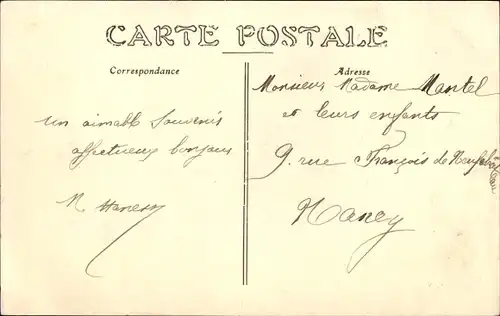 CARTE POSTALE
Correspondance
Adresse
un aimable Souvenir
affectueux bonjour
Monsieur Madame Mantel
et leurs enfants
9. rue François de Neufchâteau
Nancy